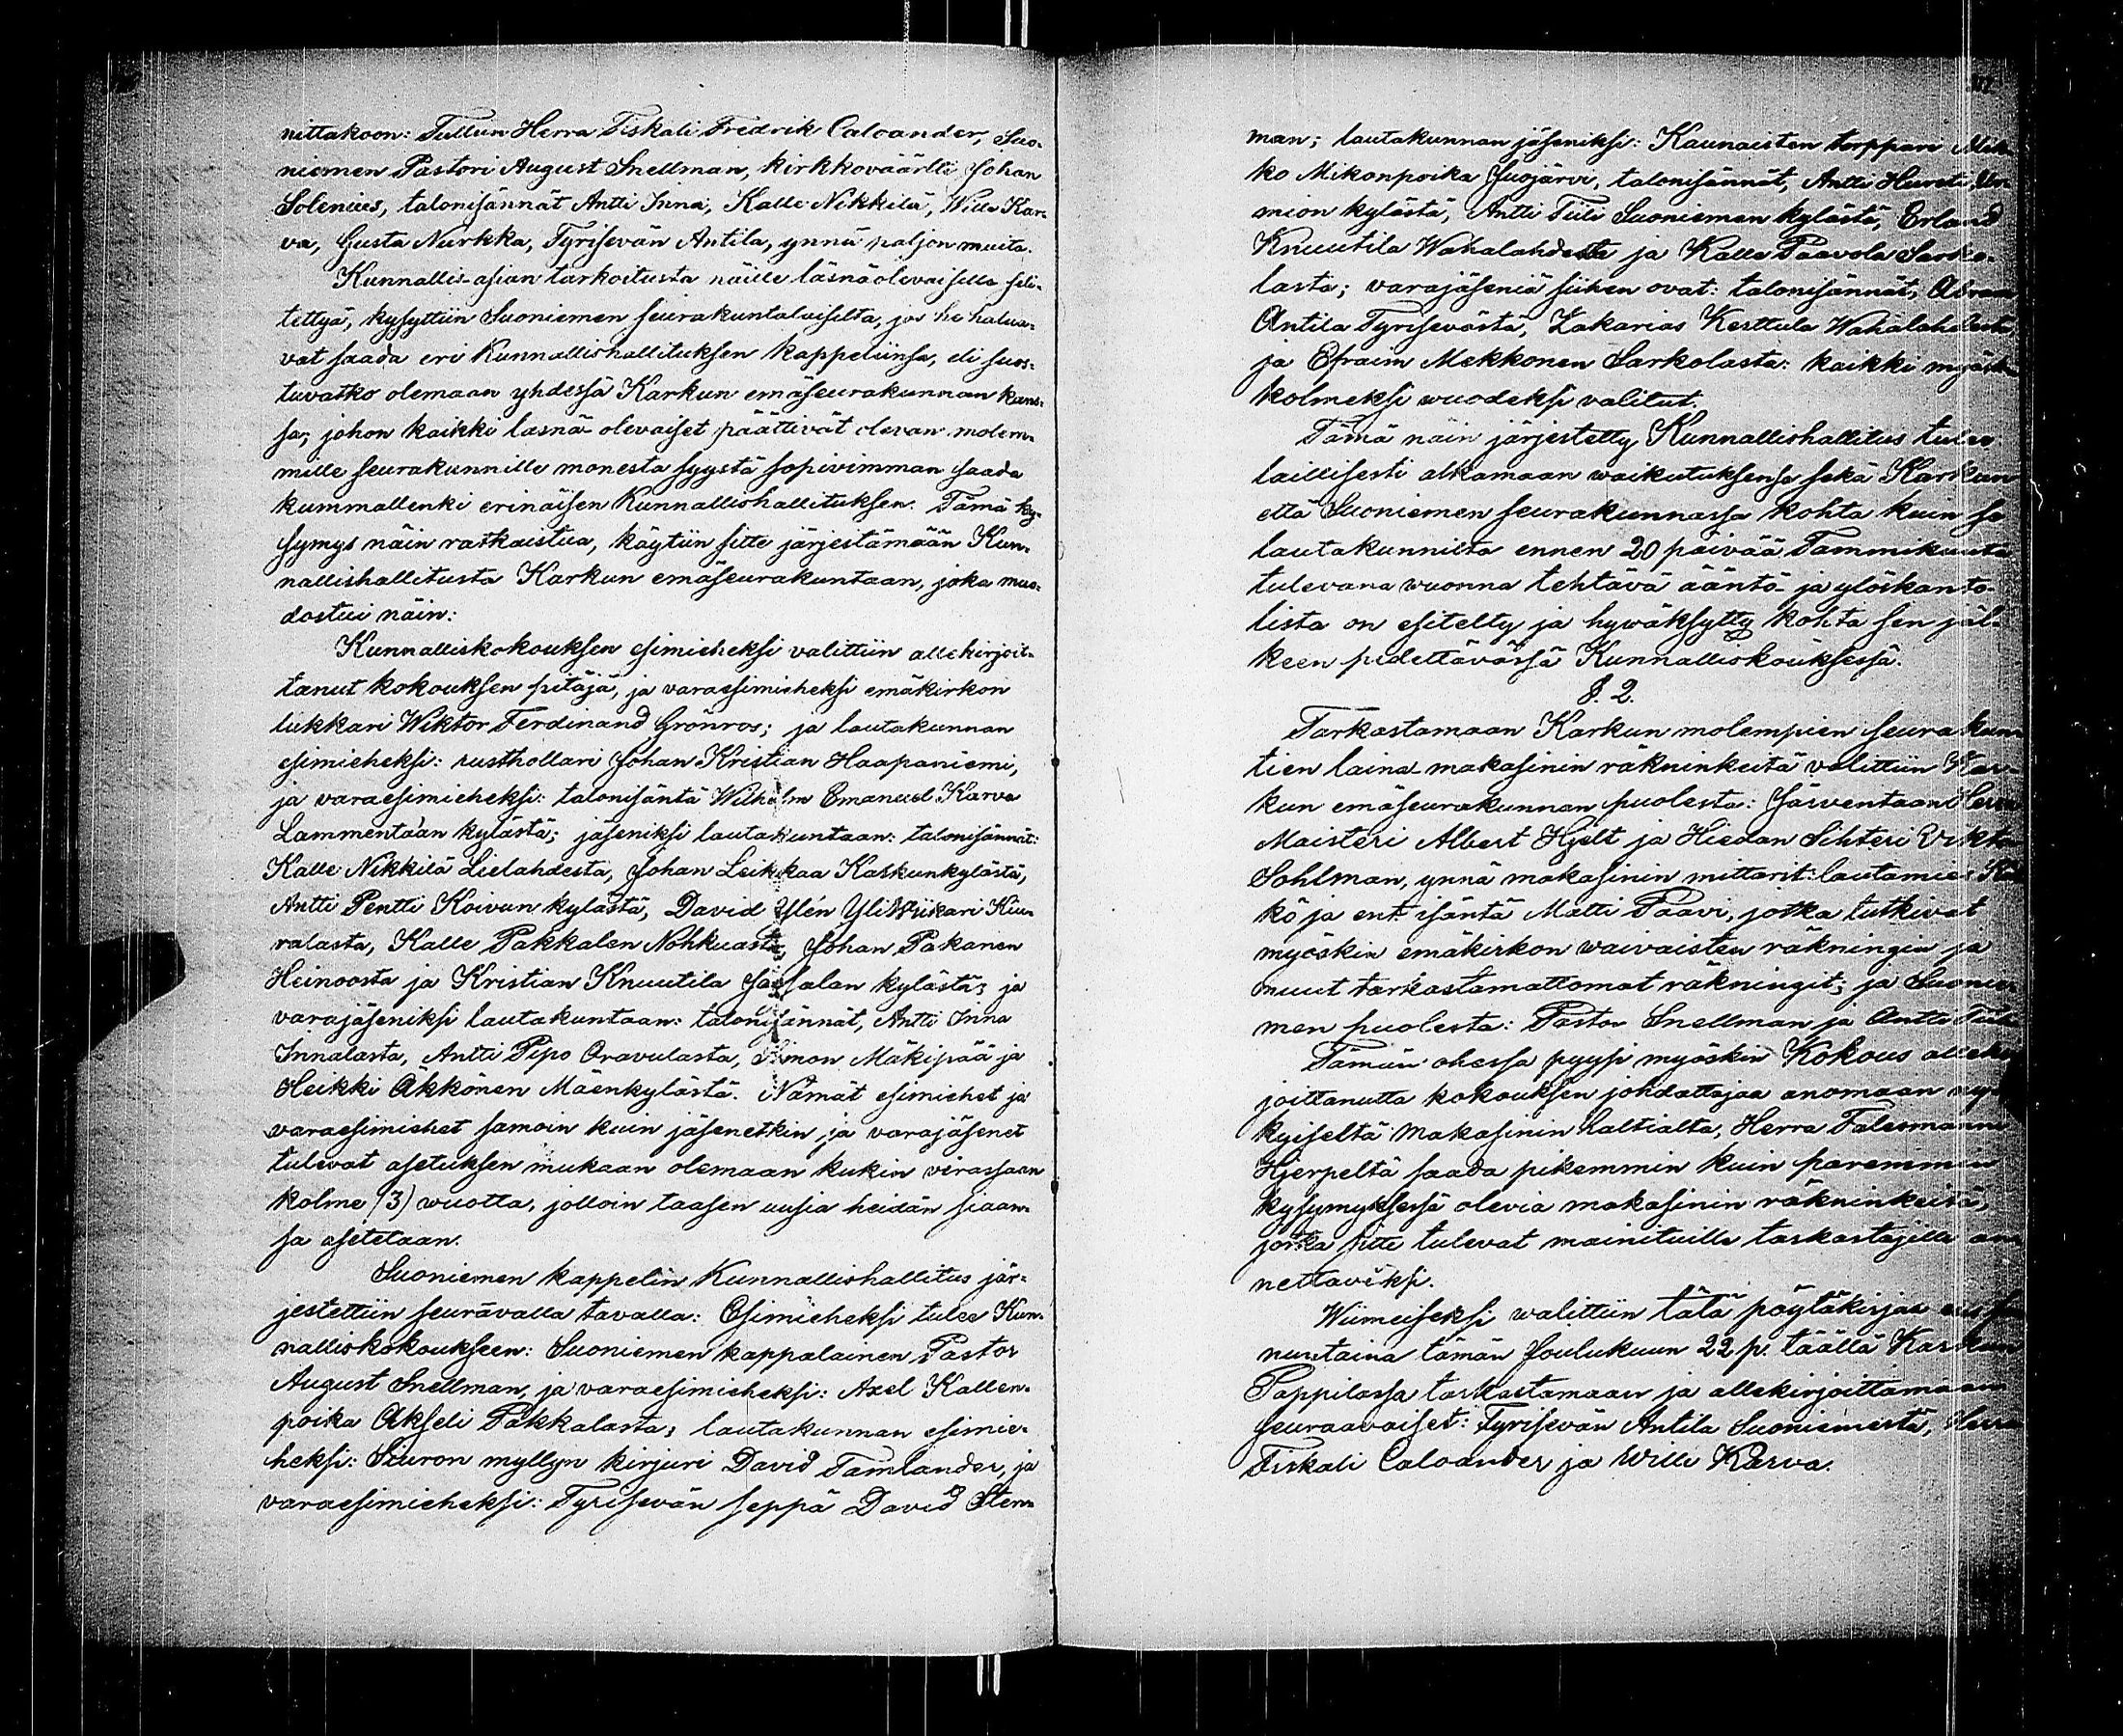 nittakoon: Tullun Herra Fiskali Fredrik Caloander, Suo-
niemen Pastori August Snellman, kirkkoväärtti Johan
Solenius, talonisännät Antti Inna, Kalle Nikkilä, Wille Kar-
va, Gusta Nurkka, Tyrisevän Antila, ynnä paljon muita.
Kunnallis-asian tarkoitusta näille läsnäolevaisille seli-
tettyä, kysyttiin Suoniemen seurakuntalaisilta, jos he halua-
vat saada eri Kunnallishallituksen kappeliinsa, eli suos-
tuvatko olemaan yhdessä Karkun emäseurakunnan kans-
sa; johon kaikki läsnä olevaiset päättivät olevan molem-
mille seurakunnille monesta syystä sopivimman saada
kummallenki erinäisen Kunnallishallituksen. Tämä ky-
symys näin ratkaistua, käytiin sitte järjestämään Kun-
nallishallitusta Karkun emäseurakuntaan, joka muo-
dostui näin:
Kunnalliskokouksen esimieheksi valittiin allekirjoit-
tanut kokouksen pitäjä, ja varaesimieheksi emäkirkon
lukkari Wiktor Ferdinand Grönros; ja lautakunnan
esimieheksi: rusthollari Johan Kristian Haapaniemi,
ja varaesimieheksi: talonisäntä Wilhelm Emanuel Karva
Lammentaan kylästä; jäseniksi lautakuntaan: talonisännät:
Kalle Nikkilä Lielahdesta, Johan Leikkaa Karkunkylästä,
Antti Pentti Koivun kylästä, David Ylén YliWiikari Kiu-
ralasta, Kalle Pakkalen Nohkuasta, Johan Pakanen
Heinoosta ja Kristian Knuutila kylästä; ja
varajäseniksi lautakuntaan: talonisännät, Antti Inna
Innalasta, Antti Pipo Oravulasta, Simon Mäkipää ja
Heikki Äkkönen Mäenkylästä. Nämät esimiehet ja
varaesimiehet samoin kuin jäsenetkin ja varajäsenet
tulevat asetuksen mukaan olemaan kukin virassaan
kolme (3) wuotta, jolloin taasen uusia heidän siaan-
sa asetetaan.
Suoniemen kappelin Kunnallishallitus jär-
jestettiin seurävalla tavalla: Esimieheksi tulee Kun-
nalliskokoukseen: Suoniemen kappalainen Pastor
August Snellman, ja varaesimieheksi: Axel Kallen-
poika Akseli Pakkalasta; lautakunnan esimie-
heksi: Siuron myllyn kirjuri David Tamlander, ja
varaesimieheksi: Tyrisevän seppä David Sten-
man; lautakunnan jäseniksi: Kaunaisten torppari Mik-
ko Mikonpoika Suojärvi, talonisännät, Antti Hursti
mion kylästä, Antti Tiili Suoniemen kylästä, Erland
Knuutila Wahalahdesta ja Kalle Paavola Sarko-
lasta; varajäseniä siihen ovat: talonisännät, Abram
Antila Tyrisevästä, Zakarias Kesttula Wahalahdesta
ja Efraim Mekkonen Sarkolasta: kaikki myöskin
kolmeksi wuodeksi valitut.
Tämä näin järjestetty Kunnallishallitus tulee
laillisesti alkamaan waikutuksensa sekä Karkun
että Suoniemen seurakunnassa kohta kuin se
lautakunnilta ennen 20 päivää Tammikuuta
tulevana wuonna tehtävä ääntö- ja ylöskanto-
lista on esitelty ja hywäksytty kohta sen jäl-
keen pidettävässä Kunnalliskouksessä.
§. 2.
Tarkastamaan Karkun molempien seurakun-
tien laina makasinin räkninkeitä valittiin Kar-
kun emäseurakunnan puolesta: Järventaan Herra
Maisteri Albert Hjelt ja Hiedan Sihteri Viktor
Sohlman, ynnä makasinin mittarit: lautamies
kö ja ent. isäntä Matti Paavi, jotka tutkivat
myöskin emäkirkon waivaisten räkningin ja
muut tarkastamattomat räkningit; ja Suonie-
men puolesta: Pastor Snellman ja Antti Tiili
Tämän ohessa pyysi myöskin Kokous allekir-
joittanutta kokouksen johdattajaa anomaan ny-
kyiseltä Makasinin haltialta, Herra Falesmanni
Hjerpeltä saada pikemmin kuin paremmin
kysymyksessä olevia makasinin räkninkeitä,
jotka sitte tulevat mainituille tarkastajille an-
nettaviksi.
Wiimeiseksi walittiin tätä pöytäkirjaa
nuntaina tämän Joulukuun 22 p. täällä Karkun
Pappilassa tarkastamaan ja allekirjoittamaan
seuraavaiset: Tyrisevän Antila Suoniemestä, Herra
Fiskali Caloander ja Wille Karva.